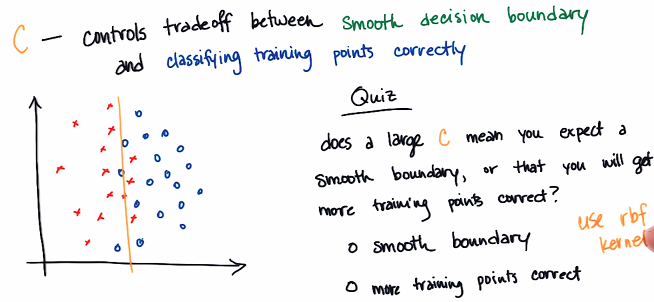 C – controls tradeoff between smooth decision boundary
and classifying training points correctly
Quiz
does a large C mean you expect a
smooth boundary, or that you will get
more training points correct?
o smooth boundary
o more training points correct
use rbf
kernel